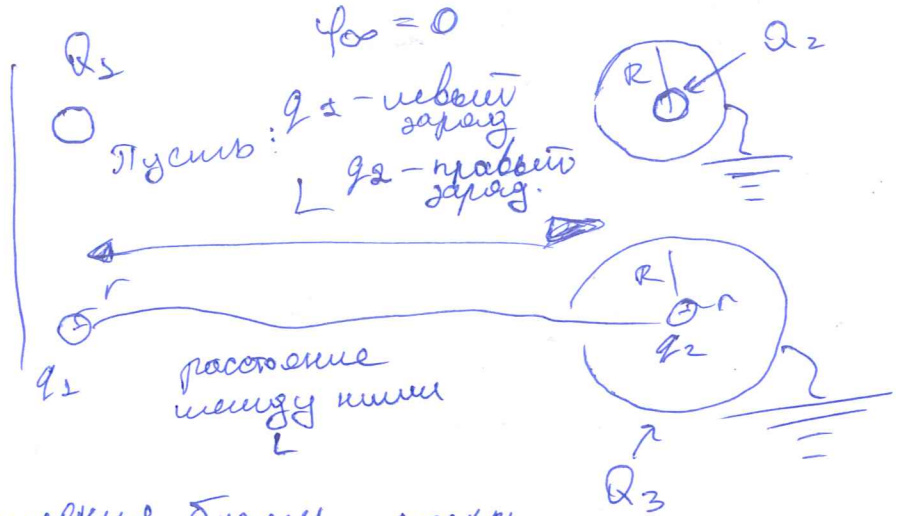 φ∞ = 0
Q₁
Q₂
R
Пусть: q₁ – левый
заряд
q₂ – правый
заряд.
L
r
R
r
q₁
q₂
расстояние
между ними
L
Q₃